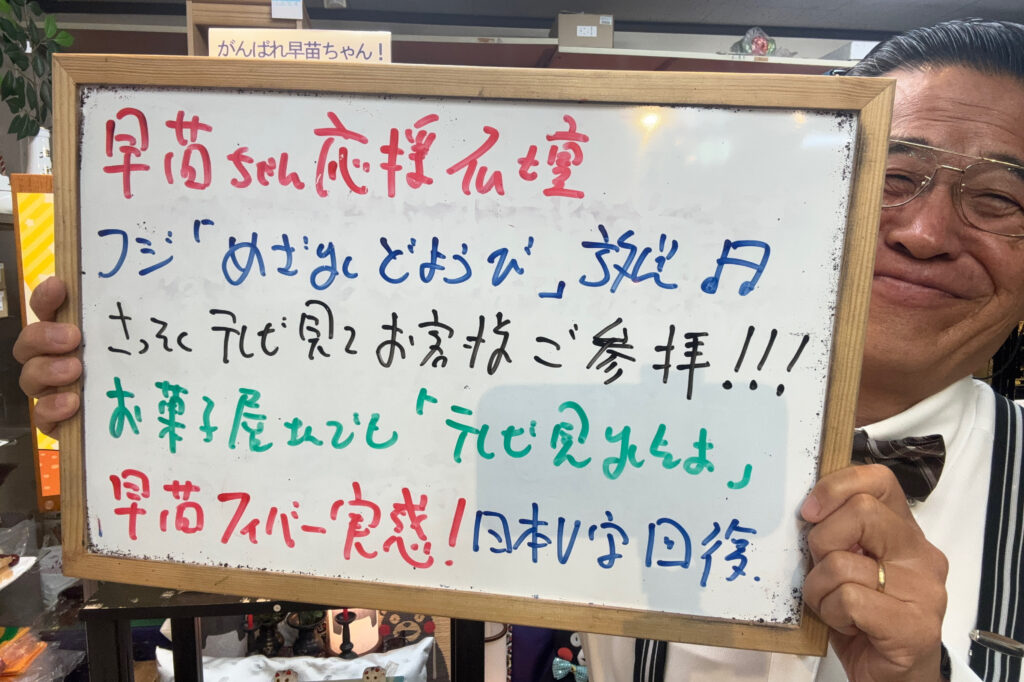 がんばれ早苗ちゃん！
早苗ちゃん応援仏壇
フジ「めざましどようび」放送♫
さっそくテレビ見てお客様ご参拝!!!
お菓子屋さんでも「テレビ見ましたよ」
早苗フィーバー実感！日本V字回復